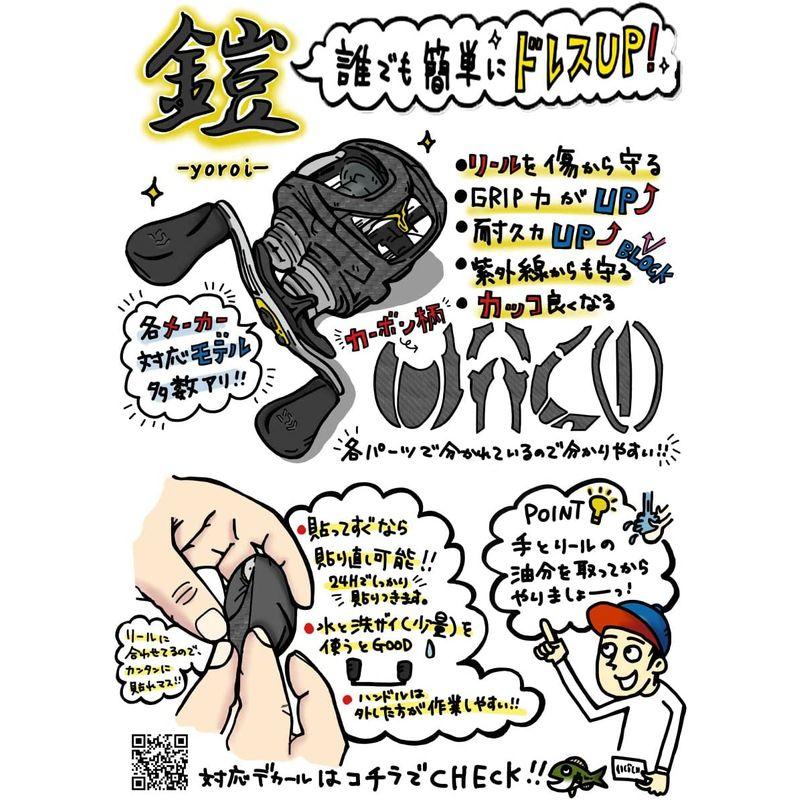 鎧
-yoroi-
誰でも簡単にドレスUP!
●リールを傷から守る
●GRIP力がUP
●耐久力UP
●紫外線からも守る
BLOCK
●カッコ良くなる
各メーカー
対応モデル
多数アリ!!
カーボン柄
各パーツで分かれているので分かりやすい!!
●貼ってすぐなら
貼り直し可能!!
24Hでしっかり
貼りつきます。
●水と洗ザイ(少量)を
使うとGOOD
●ハンドルは
外した方が作業しやすい!!
リールに
合わせてるので、
カンタンに
貼れマス!!
POINT
手とリールの
油分を取ってから
やりましょーっ!
対応デカールはコチラでCHECK!!